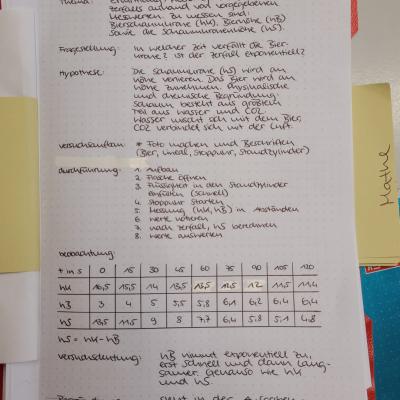 Thema:
zerfalls anhand von vorgegebenen
Messwerten. Zu messen sind:
Bierschaumkrone (hK), Bierhöhe (hB)
sowie die Schaumkronenhöhe (hS).
Fragestellung: In welcher Zeit verfällt die Bier-
krone? Ist der Zerfall exponentiell?
Hypothese: Die Schaumkrone (hS) wird an
Höhe verlieren. Das Bier wird an
Höhe zunehmen. Physikalische
und chemische Begründung:
Schaum besteht aus großem
Teil aus Wasser und CO2.
Wasser mischt sich mit dem Bier,
CO2 verbindet sich mit der Luft.
Versuchsaufbau: * Foto machen und Beschriften
(Bier, Lineal, Stoppuhr, Standzylinder)
Durchführung: 1. Aufbau
2. Flasche öffnen
3. Flüssigkeit in den Standzylinder
einfüllen (schnell)
4. Stoppuhr starten
5. Messung (hK, hB) in Abständen
6. Werte notieren
7. nach Zerfall, hS berechnen
8. Werte auswerten
Beobachtung:
t in s 0 15 30 45 60 75 90 105 120
hK 16,5 15,5 14 13,5 13,5 12,5 12 11,5 11,4
hB 3 4 5 5,5 5,8 6,1 6,2 6,4 6,4
hS 13,5 11,5 9 8 7,7 6,4 5,8 5,1 4,8
hS = hK - hB
Versuchsdeutung: hB nimmt exponentiell zu,
erst schnell und dann lang-
samer. Genauso wie hK
und hS.
Mathe